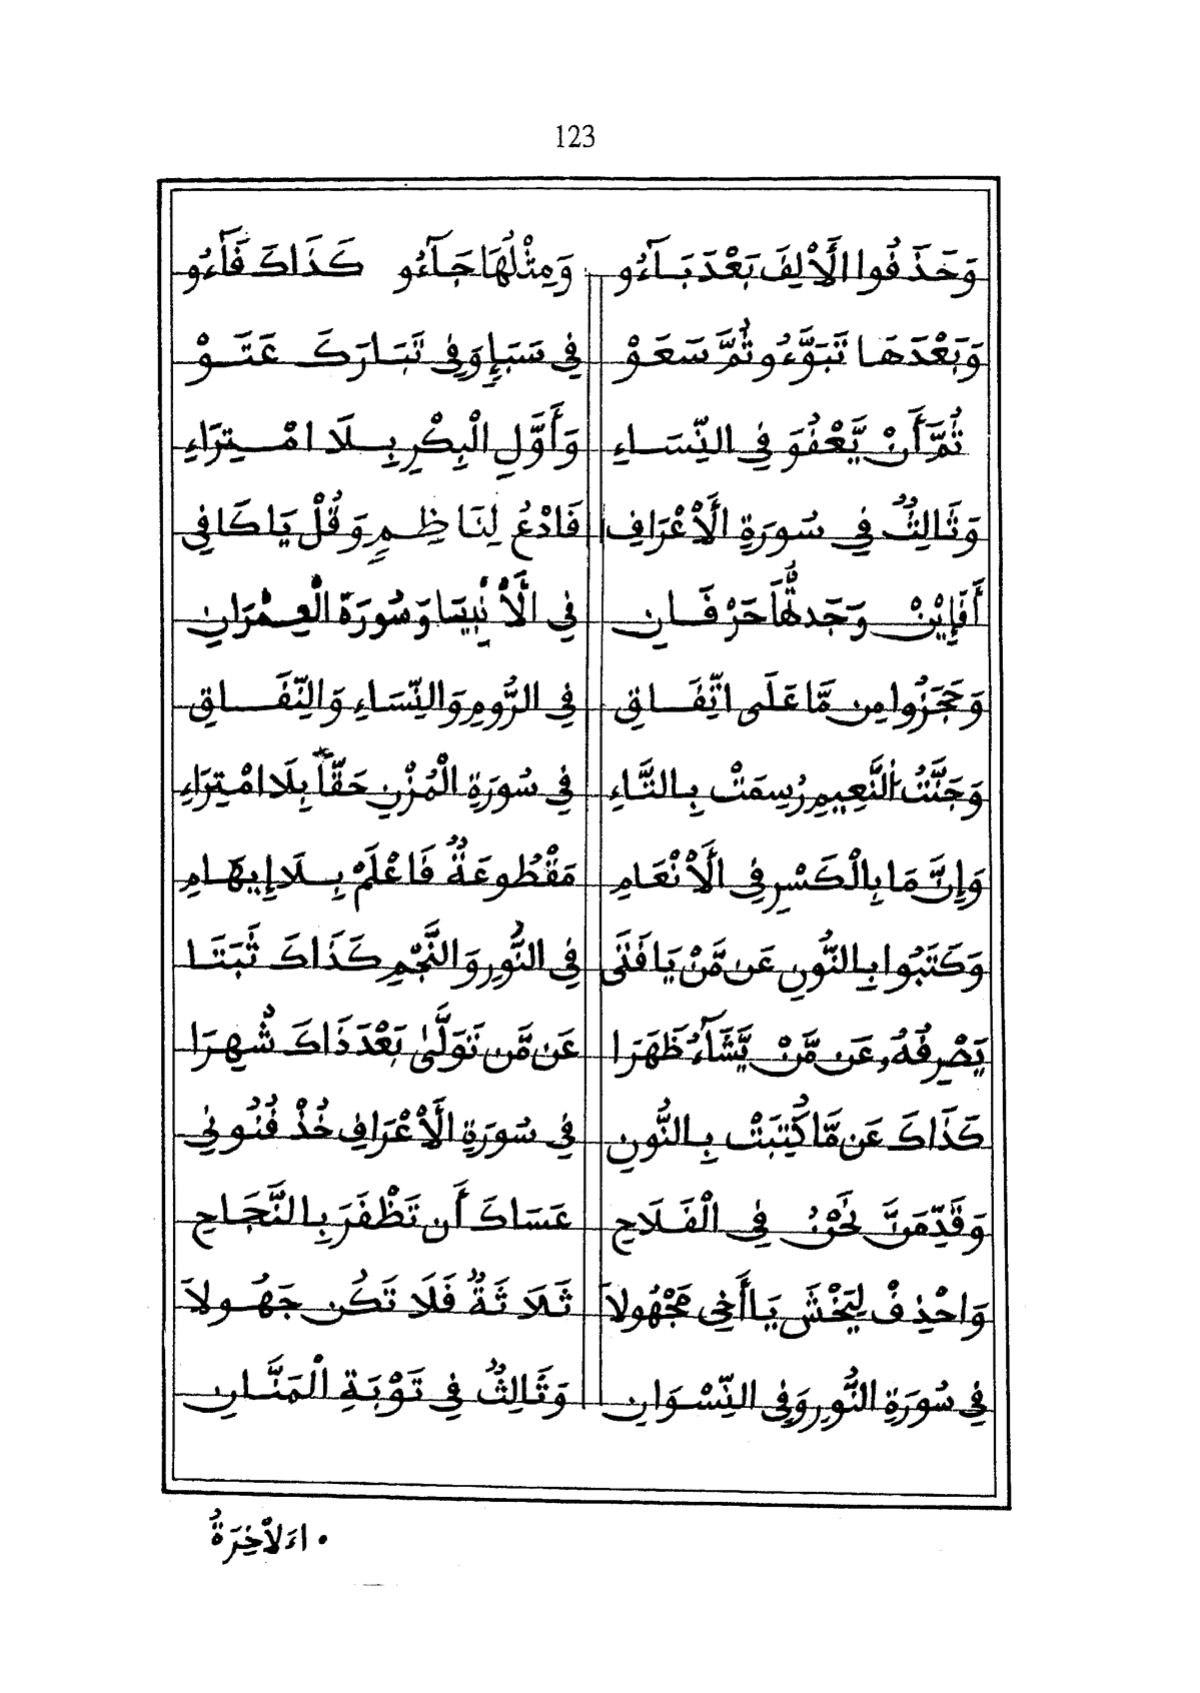 123
وَحَذَفُوا الْأَلِفَ بَعْدَ بَآءُو وَمِثْلُهَا جَآءُو كَذَاكَ فَآءُو
وَبَعْدَهَا تَبَوَّءُو ثُمَّ سَعَوْ فِي سَبَإٍ وَفِي تَبَارَكَ عَتَوْ
ثُمَّ أَنْ يَّعْفُوَ فِي النِّسَاءِ وَأَوَّلِ الْبِكْرِ بِلَا امْتِرَاءِ
وَثَالِثٌ فِي سُورَةِ الْأَعْرَافِ فَادْعُ لِنَاظِمٍ وَقُلْ يَا كَافِي
أَفَإِيْنْ وَجَدتُّهَا حَرْفَانِ فِي الْأَنْبِيَا وَسُورَةِ الْعِمْرَانِ
وَحَجَزُوا مِن مَّا عَلَى اتِّفَاقِ فِي الرُّومِ وَالنِّسَاءِ وَالنِّفَاقِ
وَجَنَّتُ النَّعِيمِ رُسِمَتْ بِالتَّاءِ فِي سُورَةِ الْمُزْنِ حَقّاً بِلَا امْتِرَاءِ
وَإِنَّ مَا بِالْكَسْرِ فِي الْأَنْعَامِ مَقْطُوعَةٌ فَاعْلَمْ بِلَا إِيهَامِ
وَكَتَبُوا بِالنُّونِ عَن مَّنْ يَا فَتَى فِي النُّورِ وَالنَّجْمِ كَذَاكَ ثَبَتَا
يَصْرِفُهُ عَن مَّنْ يَّشَآءُ ظَهَرَا عَن مَّن تَوَلَّىٰ بَعْدَ ذَاكَ شُهِرَا
كَذَاكَ عَن مَّا كُتِبَتْ بِالنُّونِ فِي سُورَةِ الْأَعْرَافِ خُذْ فُنُونِي
وَقَدِّمَنَّ نَحْنُ فِي الْفَلَاحِ عَسَاكَ أَن تَظْفَرَ بِالنَّجَاحِ
وَاحْذِفْ لِيَخْشَ يَا أَخِي مَجْهُولَا ثَلَاثَةٌ فَلَا تَكُن جَهُولَا
فِي سُورَةِ النُّورِ وَفِي النِّسْوَانِ وَثَالِثٌ فِي تَوْبَةِ الْمَنَّانِ
• اءَلَاْخِرَةُ